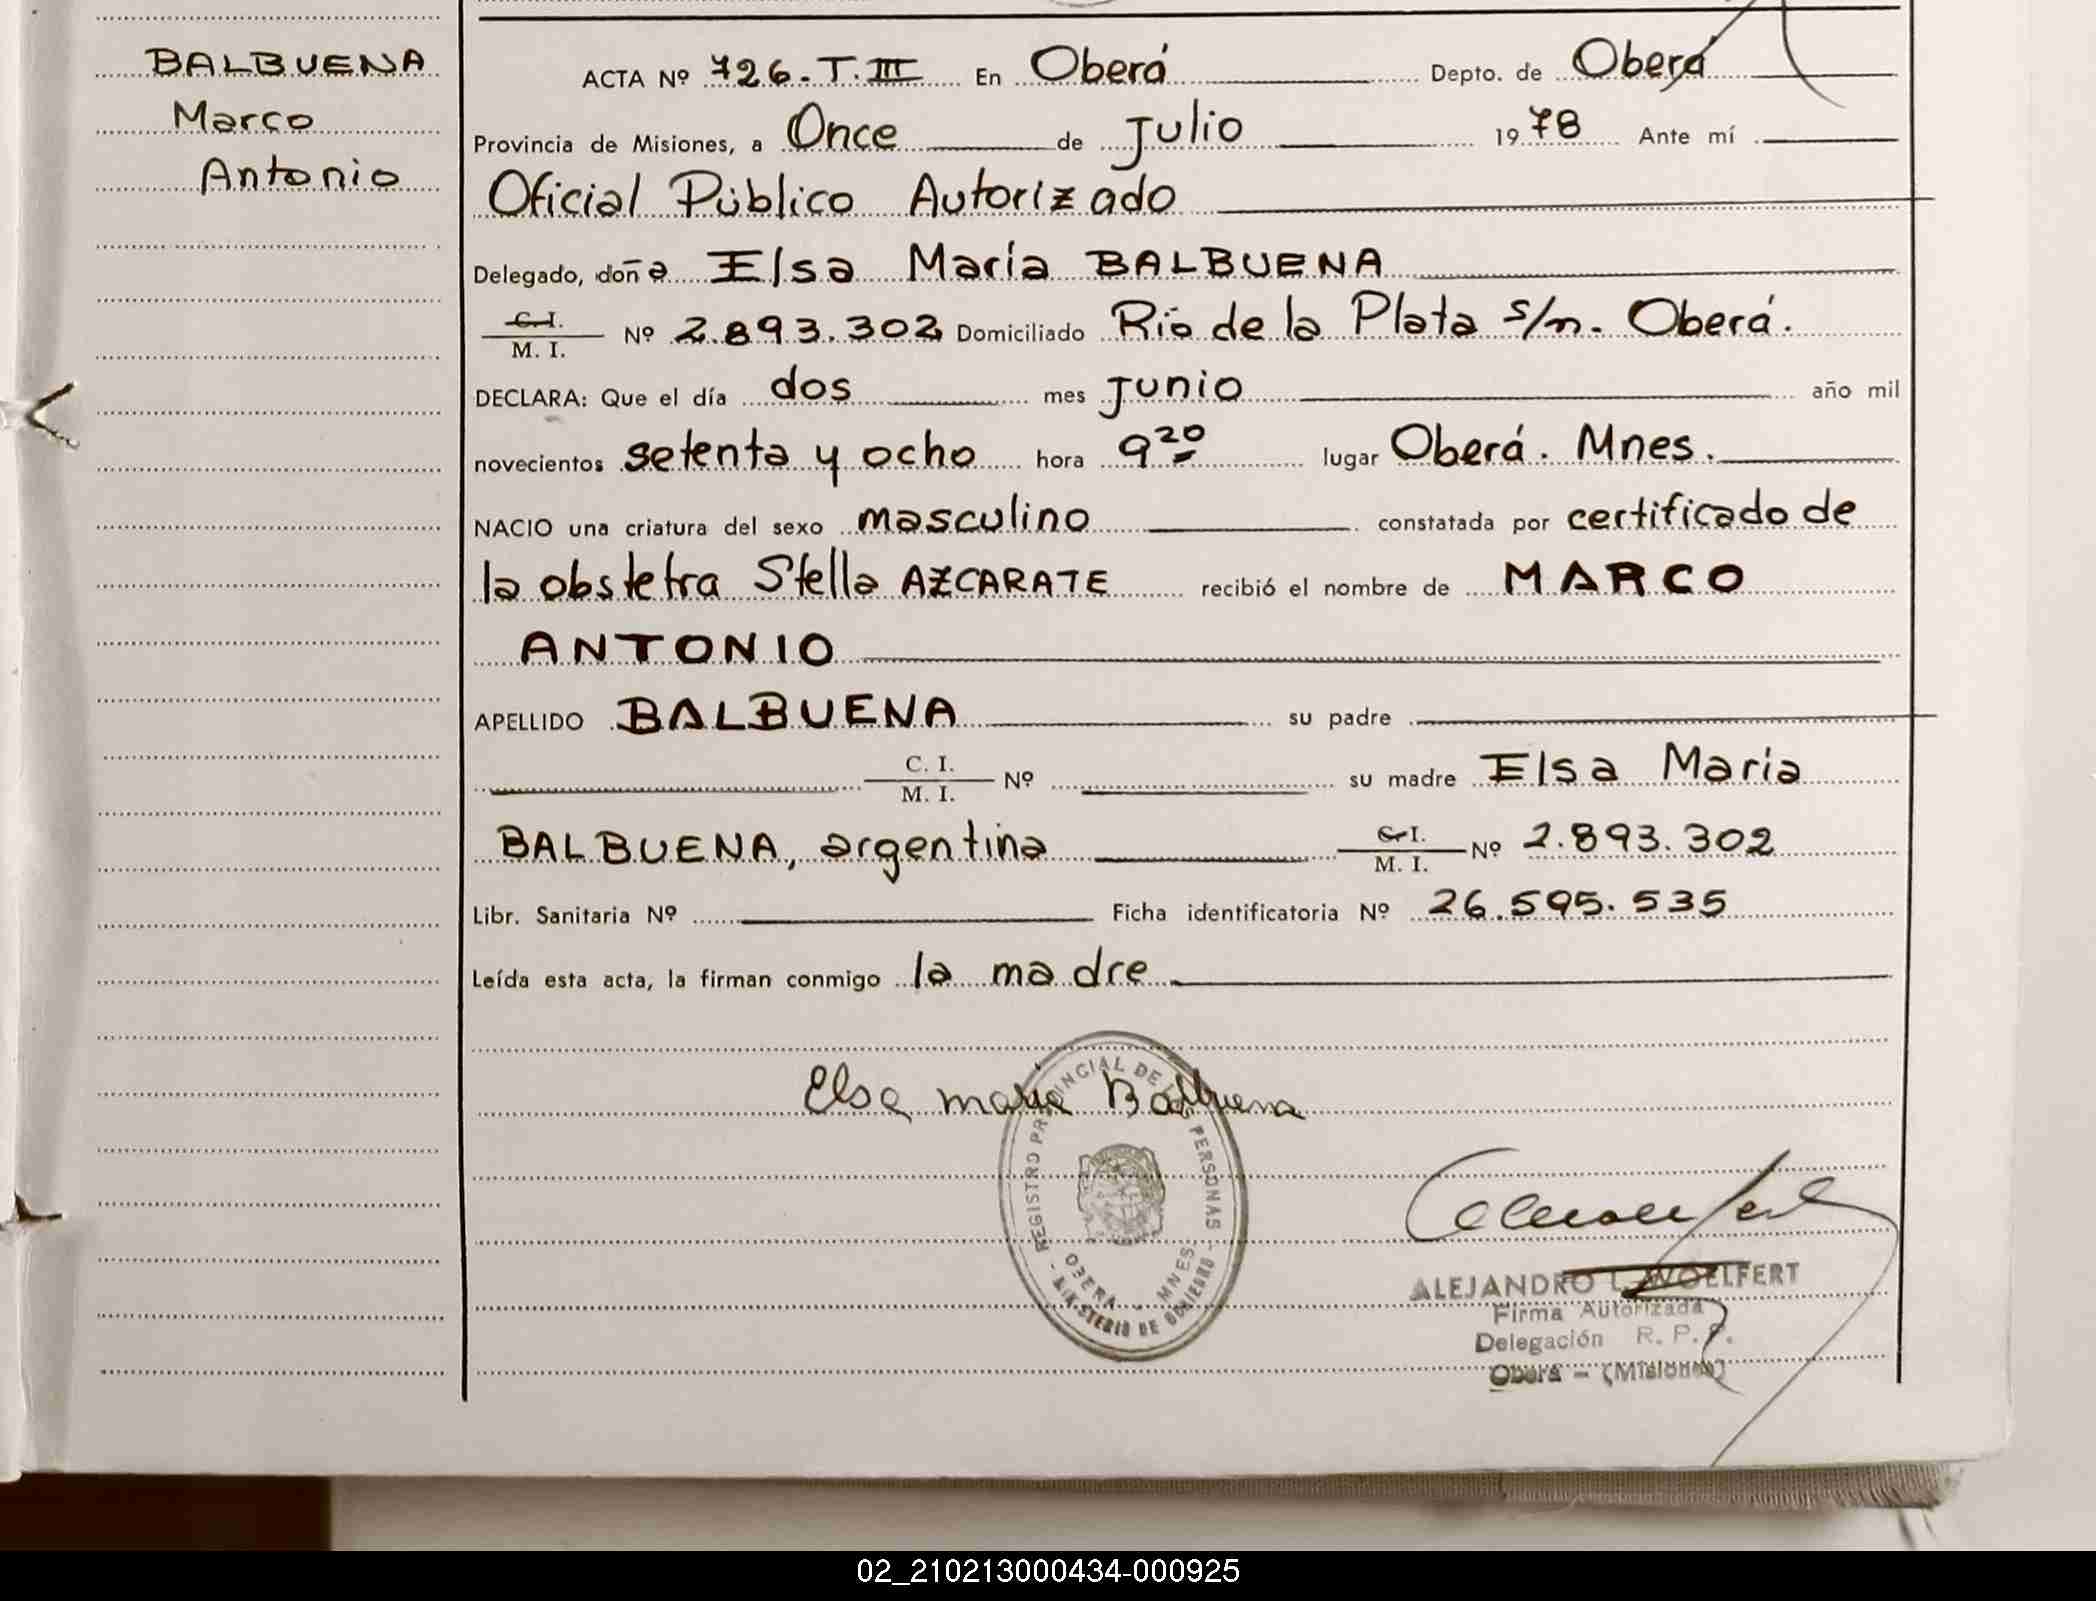 BALBUENA
Marco
Antonio
ACTA Nº 726-T.III En Oberá Depto. de Oberá
Provincia de Misiones, a Once de Julio 1978 Ante mí
Oficial Público Autorizado
Delegado, doña Elsa María BALBUENA
C. I.
M. I. Nº 2.893.302 Domiciliado Río de la Plata s/n. Oberá.
DECLARA: Que el día dos mes Junio año mil
novecientos setenta y ocho hora 9 20 lugar Oberá. Mnes.
NACIO una criatura del sexo masculino constatada por certificado de
la obstetra Stella AZCARATE recibió el nombre de MARCO
ANTONIO
APELLIDO BALBUENA su padre
C. I.
M. I. Nº su madre Elsa María
BALBUENA, argentina C. I.
M. I. Nº 2.893.302
Libr. Sanitaria Nº Ficha identificatoria Nº 26.595.535
Leída esta acta, la firman conmigo la madre
Elsa maria Balbuena
REGISTRO PROVINCIAL DE LAS PERSONAS
OBERA - MNES
MINISTERIO DE GOBIERNO
ALEJANDRO L. WOELFERT
Firma Autorizada
Delegación R. P. P.
Oberá - (Misiones)
02_210213000434-000925